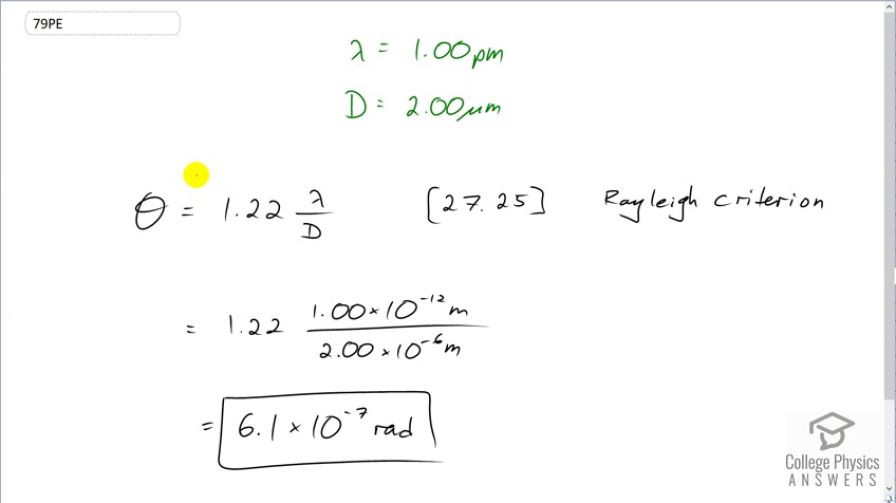 79PE
λ = 1.00 pm
D = 2.00 μm
θ = 1.22 λ/D [27.25] Rayleigh criterion
= 1.22 1.00 × 10⁻¹² m / 2.00 × 10⁻⁶ m
= 6.1 × 10⁻⁷ rad
College Physics
ANSWERS